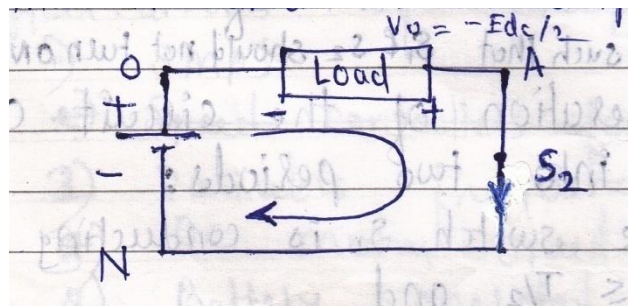 V0 = -Edc/2
O Load A
+ - +
- S2
N